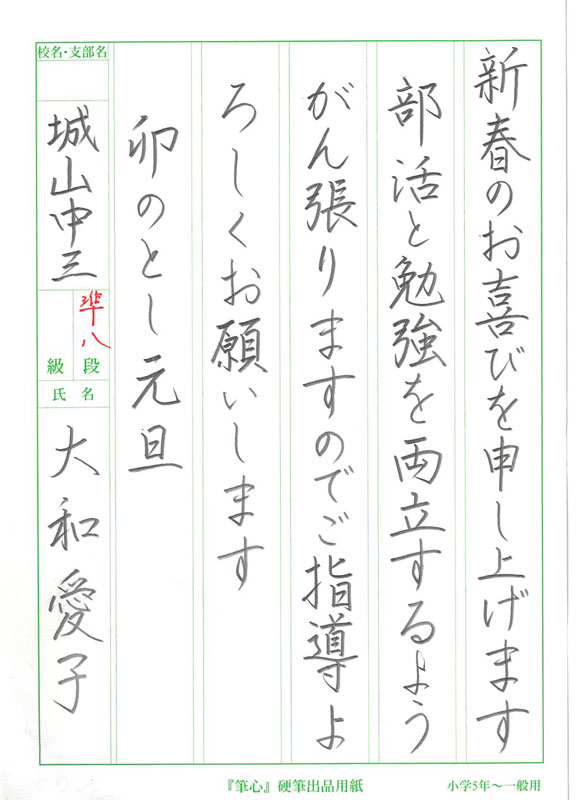 新春のお喜びを申し上げます
部活と勉強を両立するよう
がん張りますのでご指導よ
ろしくお願いします
卯のとし元旦
校名・支部名
城山中三
準八
段
級
氏名
大和愛子
『筆心』硬筆出品用紙
小学5年～一般用